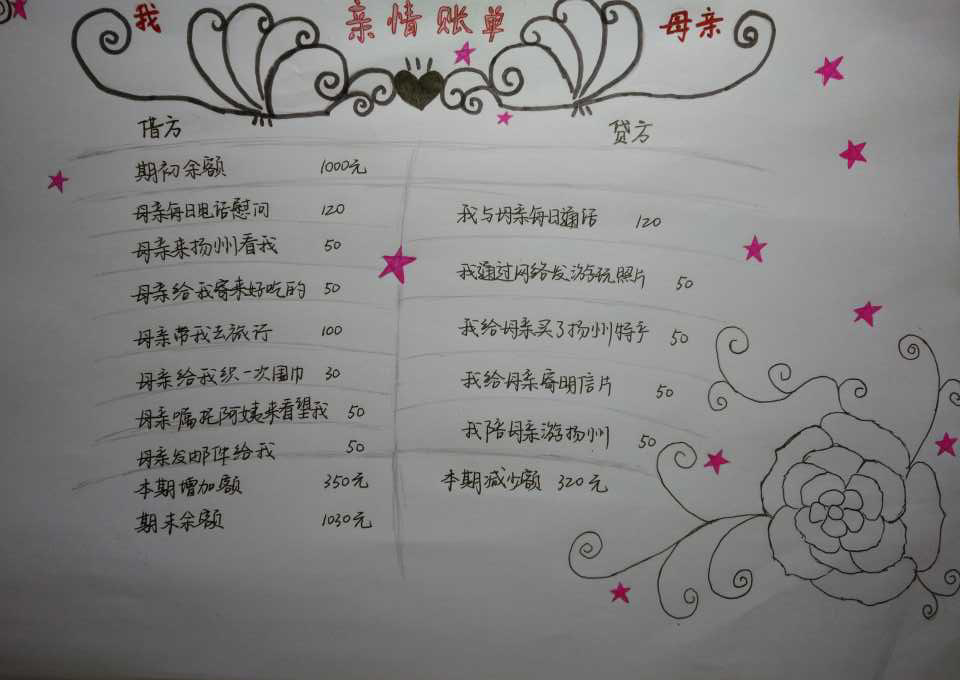 我 亲情账单 母亲
借方 贷方
期初余额 1000元
母亲每日电话慰问 120 我与母亲每日通话 120
母亲来扬州看我 50 我通过网络发游玩照片 50
母亲给我寄来好吃的 50
母亲带我去旅行 100 我给母亲买了扬州特产 50
母亲给我织一次围巾 30 我给母亲寄明信片 50
母亲嘱托阿姨来看望我 50 我陪母亲游扬州 50
母亲发邮件给我 50
本期增加额 350元 本期减少额 320元
期末余额 1030元